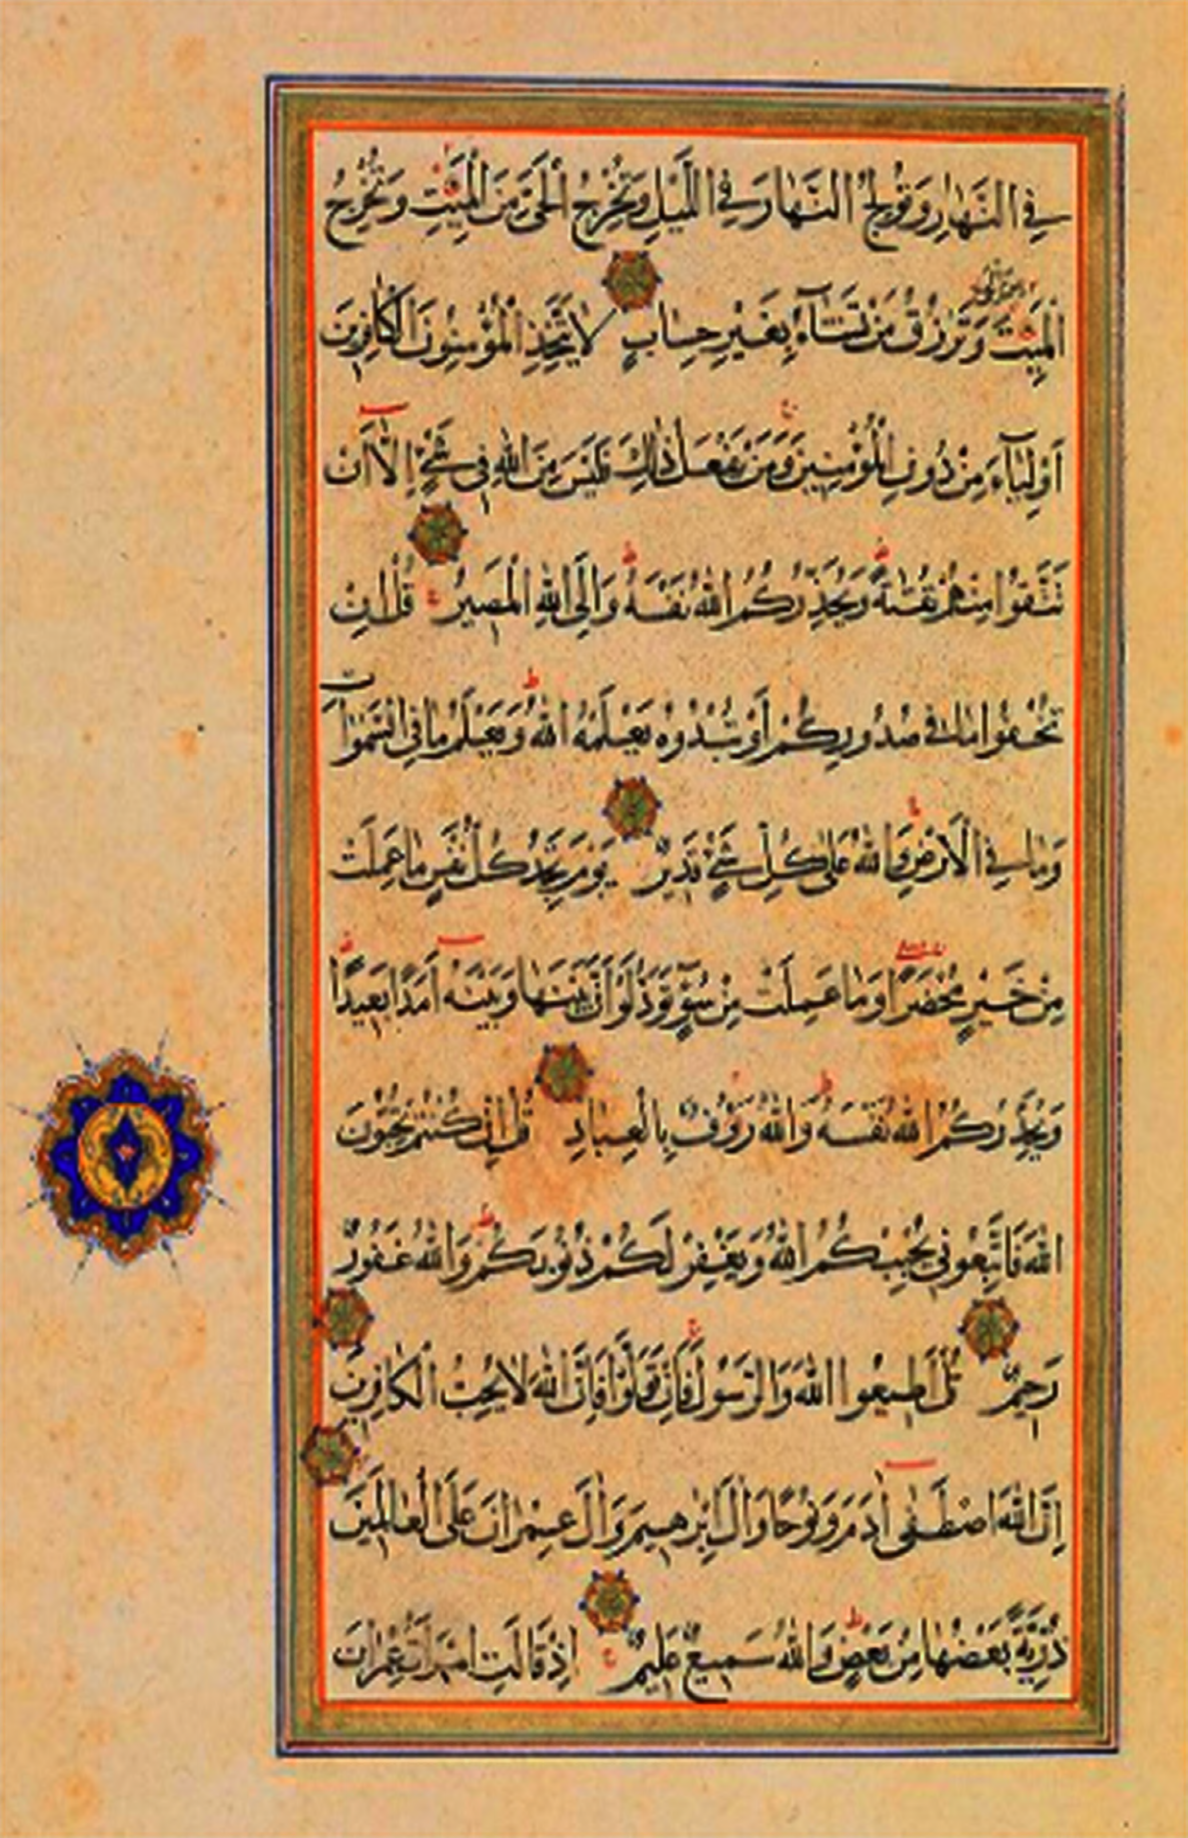 فِي النَّهَارِ وَتُولِجُ النَّهَارَ فِي اللَّيْلِ وَتُخْرِجُ الْحَيَّ مِنَ الْمَيِّتِ وَتُخْرِجُ
الْمَيِّتَ مِنَ الْحَيِّ وَتَرْزُقُ مَنْ تَشَاءُ بِغَيْرِ حِسَابٍ لَا يَتَّخِذِ الْمُؤْمِنُونَ الْكَافِرِينَ
أَوْلِيَاءَ مِنْ دُونِ الْمُؤْمِنِينَ وَمَنْ يَفْعَلْ ذَلِكَ فَلَيْسَ مِنَ اللَّهِ فِي شَيْءٍ إِلَّا أَنْ
تَتَّقُوا مِنْهُمْ تُقَاةً وَيُحَذِّرُكُمُ اللَّهُ نَفْسَهُ وَإِلَى اللَّهِ الْمَصِيرُ قُلْ إِنْ
تُخْفُوا مَا فِي صُدُورِكُمْ أَوْ تُبْدُوهُ يَعْلَمْهُ اللَّهُ وَيَعْلَمُ مَا فِي السَّمَوَاتِ
وَمَا فِي الْأَرْضِ وَاللَّهُ عَلَى كُلِّ شَيْءٍ قَدِيرٌ يَوْمَ تَجِدُ كُلُّ نَفْسٍ مَا عَمِلَتْ
مِنْ خَيْرٍ مُحْضَرًا وَمَا عَمِلَتْ مِنْ سُوءٍ تَوَدُّ لَوْ أَنَّ بَيْنَهَا وَبَيْنَهُ أَمَدًا بَعِيدًا
وَيُحَذِّرُكُمُ اللَّهُ نَفْسَهُ وَاللَّهُ رَؤُفٌ بِالْعِبَادِ قُلْ إِنْ كُنْتُمْ تُحِبُّونَ
اللَّهَ فَاتَّبِعُونِي يُحْبِبْكُمُ اللَّهُ وَيَغْفِرْ لَكُمْ ذُنُوبَكُمْ وَاللَّهُ غَفُورٌ
رَحِيمٌ قُلْ أَطِيعُوا اللَّهَ وَالرَّسُولَ فَإِنْ تَوَلَّوْا فَإِنَّ اللَّهَ لَا يُحِبُّ الْكَافِرِينَ
إِنَّ اللَّهَ اصْطَفَى آدَمَ وَنُوحًا وَآلَ إِبْرَهِيمَ وَآلَ عِمْرَانَ عَلَى الْعَالَمِينَ
ذُرِّيَّةً بَعْضُهَا مِنْ بَعْضٍ وَاللَّهُ سَمِيعٌ عَلِيمٌ إِذْ قَالَتِ امْرَأَتُ عِمْرَانَ